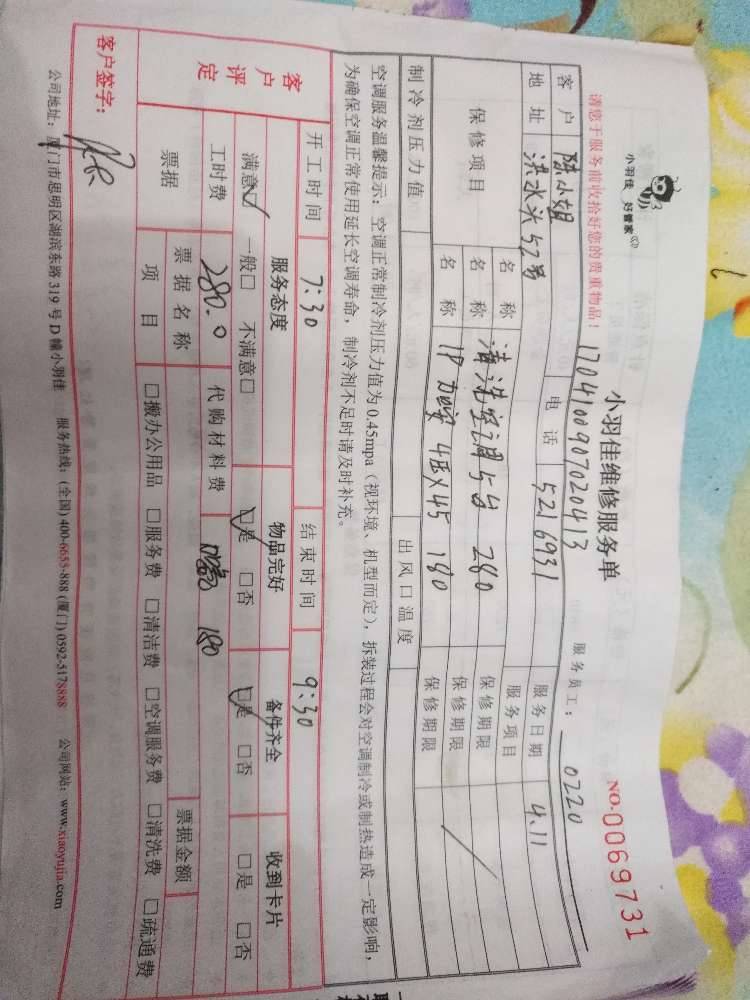 小羽佳 好管家
小羽佳维修服务单
NO.0069731
请您于服务前收拾好您的贵重物品！
1704100907020413
服务员工： 0220
客户 陈小姐 电话 5216931 服务日期 4.11
地址 洪水头52号 服务项目
保修项目 名称 清洗空调5台 280 保修期限
名称 1P加氟 4压X45 180 保修期限
名称 保修期限
制冷剂压力值 出风口温度
空调服务温馨提示：空调正常制冷剂压力值为0.45mpa（视环境、机型而定），拆装过程会对空调制冷或制热造成一定影响，
为确保空调正常使用延长空调寿命，制冷剂不足时请及时补充。
开工时间 7:30 结束时间 9:30
客户评定 服务态度 物品完好 备件齐全 收到卡片
满意☑ 一般□ 不满意□ ☑是 □否 ☑是 □否 □是 □否
工时费 280.0 代购材料费 180
票据 票据名称 票据金额
项目 □搬办公用品 □服务费 □清洁费 □空调服务费 □清洗费 □疏通费
客户签字：
公司地址：厦门市思明区湖滨东路319号D幢小羽佳 服务热线：(全国)400-6655-888 (厦门)0592-5178888 公司网站：www.xiaoyujia.com